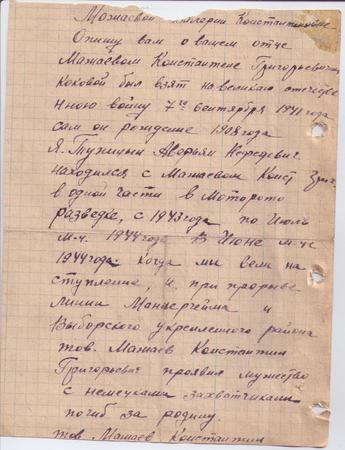 Мажаевой Валерии Константиновне
Опишу вам о вашем отце
Мажаевом Константине Григорьевиче
Коковой был взят на великаю отечестве
нною войну 7го сентября 1941 года
сам он рождение 1908 года
Я. Тупицын Аверьян Нефедович.
находился с Мажаевом Конст Григ.
в одной части в Моторото
разведке, с 1943 года по Июль
м-ц. 1944 года В Июне м-це
1944 года. когда мы вели на
ступление, и. при прорыве
линии Маннергейма и
Выборского укрепленого района
тов. Мажаев Константин
Григорьевич проявил мужество
с немецкими захватчиками
погиб за родину.
тов Мажаев Константин